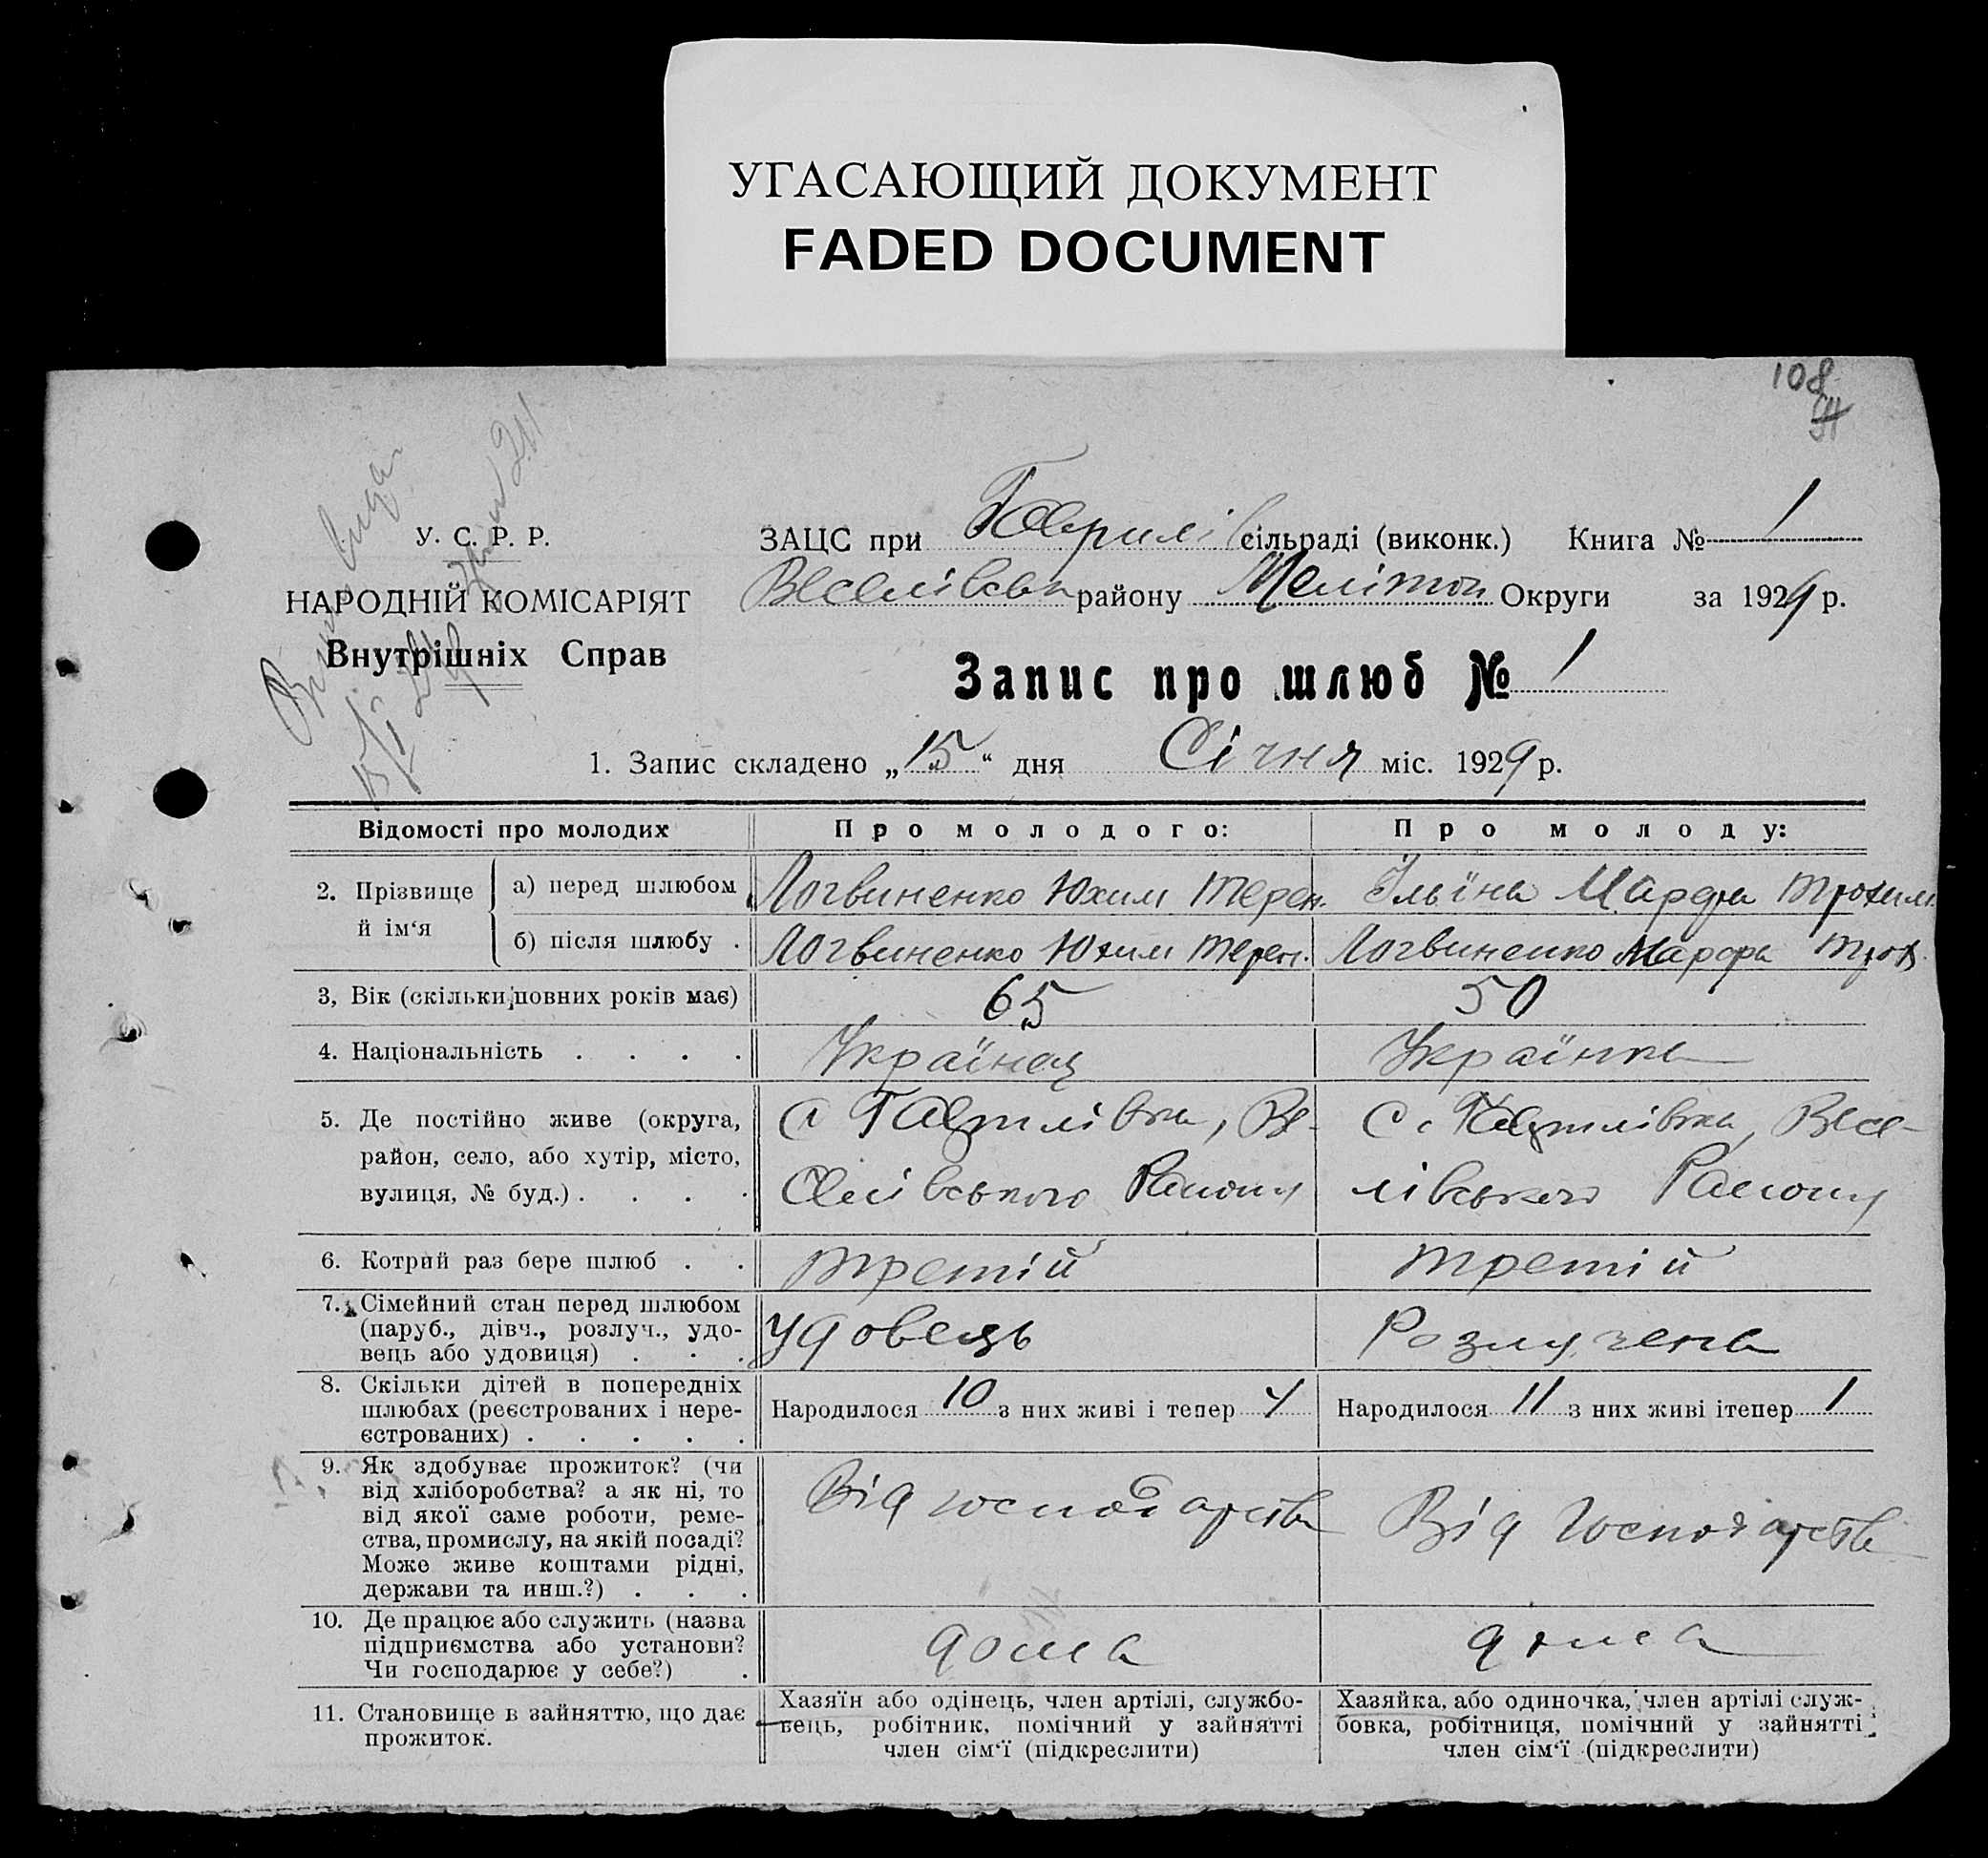 УГАСАЮЩИЙ ДОКУМЕНТ
FADED DOCUMENT
108
У. С. Р. Р.
НАРОДНІЙ КОМІСАРІЯТ
Внутрішніх Справ
ЗАЦС при Гаврилів сільраді (виконк.) Книга № 1
Веселівськ району Мелітоп Округи за 1929 р.
Запис про шлюб № 1
1. Запис складено „15“ дня Січня міс. 1929 р.
Відомості про молодих Про молодого: Про молоду:
2. Прізвище й ім‘я
а) перед шлюбом Логвиненко Юхим Терен. Ільїна Марфа Трохим.
б) після шлюбу . Логвиненко Юхим Терен. Логвиненко Марфа Трох.
3, Вік (скільки повних років має) 65 50
4. Національність . . . . Українец Українка
5. Де постійно живе (округа,
район, село, або хутір, місто,
вулиця, № буд.) . . . .
с Гаврилівка, Ве-
селівського Району
с. Гаврилівка, Весе-
лівського Району
6. Котрий раз бере шлюб . . третій третій
7. Сімейний стан перед шлюбом
(паруб., дівч., розлуч., удо-
вець або удовиця) . . .
удовець Розлучена
8. Скільки дітей в попередніх
шлюбах (реєстрованих і нере-
єстрованих) . . . . .
Народилося 10 з них живі і тепер 4 Народилося 11 з них живі ітепер 1
9. Як здобуває прожиток? (чи
від хліборобства? а як ні, то
від якої саме роботи, реме-
ства, промислу, на якій посаді?
Може живе коштами рідні,
держави та инш.?) . . .
Від господарства Від Господарства
10. Де працює або служить (назва
підприємства або установи?
Чи господарює у себе?) .
дома дома
11. Становище в зайняттю, що дає
прожиток.
Хазяїн або одінець, член артілі, службо-
вець, робітник, помічний у зайнятті
член сім‘ї (підкреслити)
Хазяйка, або одиночка, член артілі служ-
бовка, робітниця, помічний у зайнятті
член сім‘ї (підкреслити)